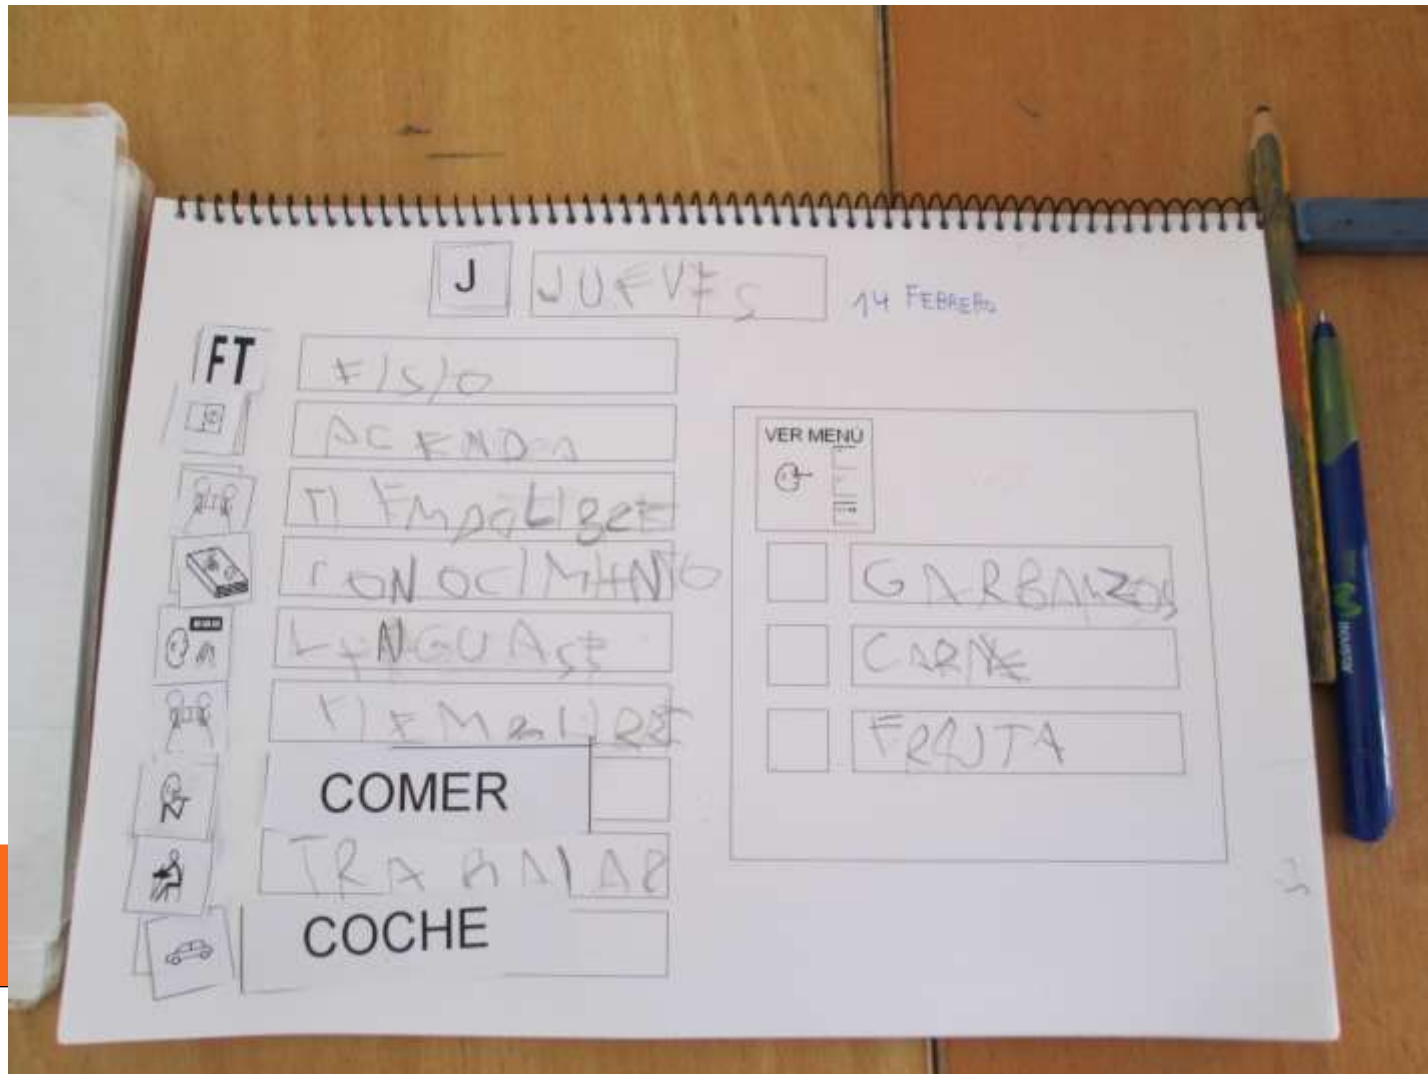 J JUEVES 14 FEBRERO
FT FISIO
AGENDA
TIEMPO LIBRE
CONOCIMIENTO
LENGUAJE
COMER
TRABAJAR
COCHE
VER MENÚ
GARBANZOS
CARNE
FRUTA
movistar